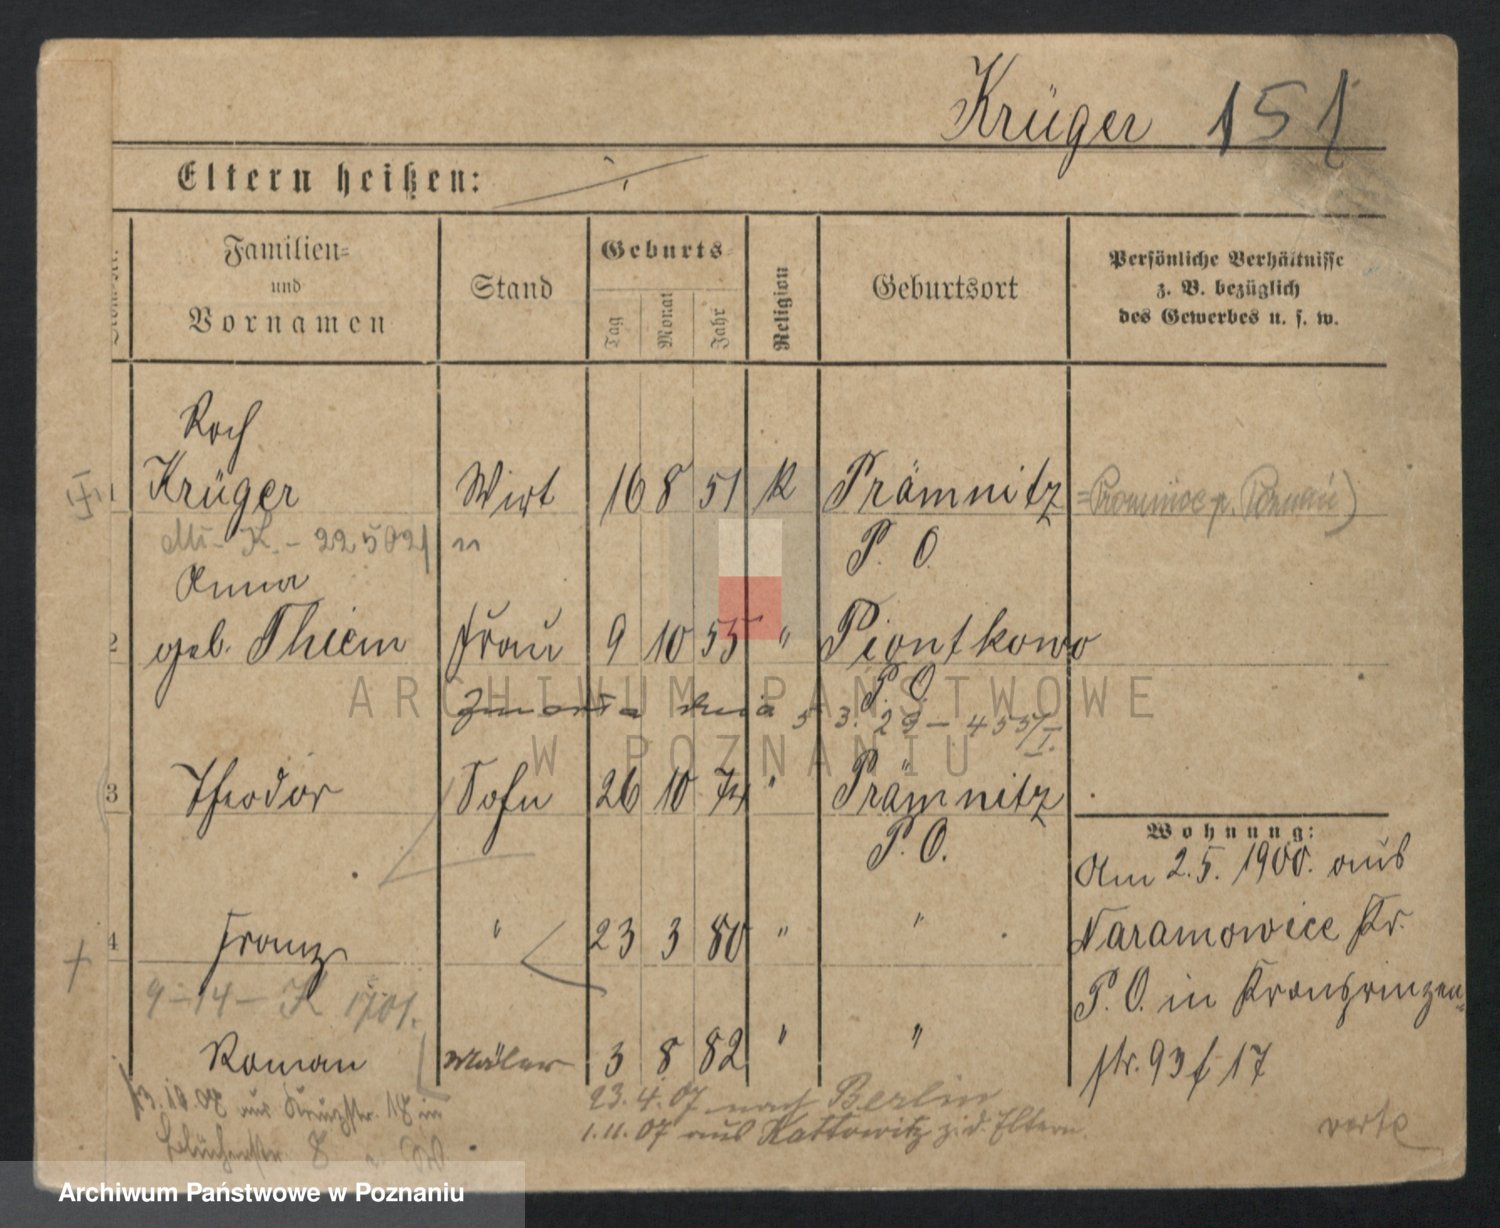 Krüger 151
Eltern heißen: ./.
Familien- und Vornamen
Stand
Geburts-
Tag Monat Jahr
Religion
Geburtsort
Persönliche Verhältnisse
z. B. bezüglich
des Gewerbes u. s. w.
Roch
1 Krüger Wirt 16 8 51 K Prämnitz
P. O.
Anna
2 geb. Thiem Frau 9 10 55 " Piontkowo
P. O.
zmarła dnia 5 3. 29 – 455/I.
3 Theodor Sohn 26 10 74 " Prämnitz
P. O.
4 Franz " 23 3 80 " "
9 – 14 – K 1901.
Roman Maler 3 8 82 " "
Wohnung:
Am 2.5. 1900. aus
Naramowice Kr.
P. O. in Kronprinzen-
str. 93 f 17
13.10.02 aus Kreuzstr. 18 in
23.4.07 nach Berlin
1.11.07 aus Kattowitz z. d. Eltern.
verte
ARCHIWUM PAŃSTWOWE
W POZNANIU
Archiwum Państwowe w Poznaniu